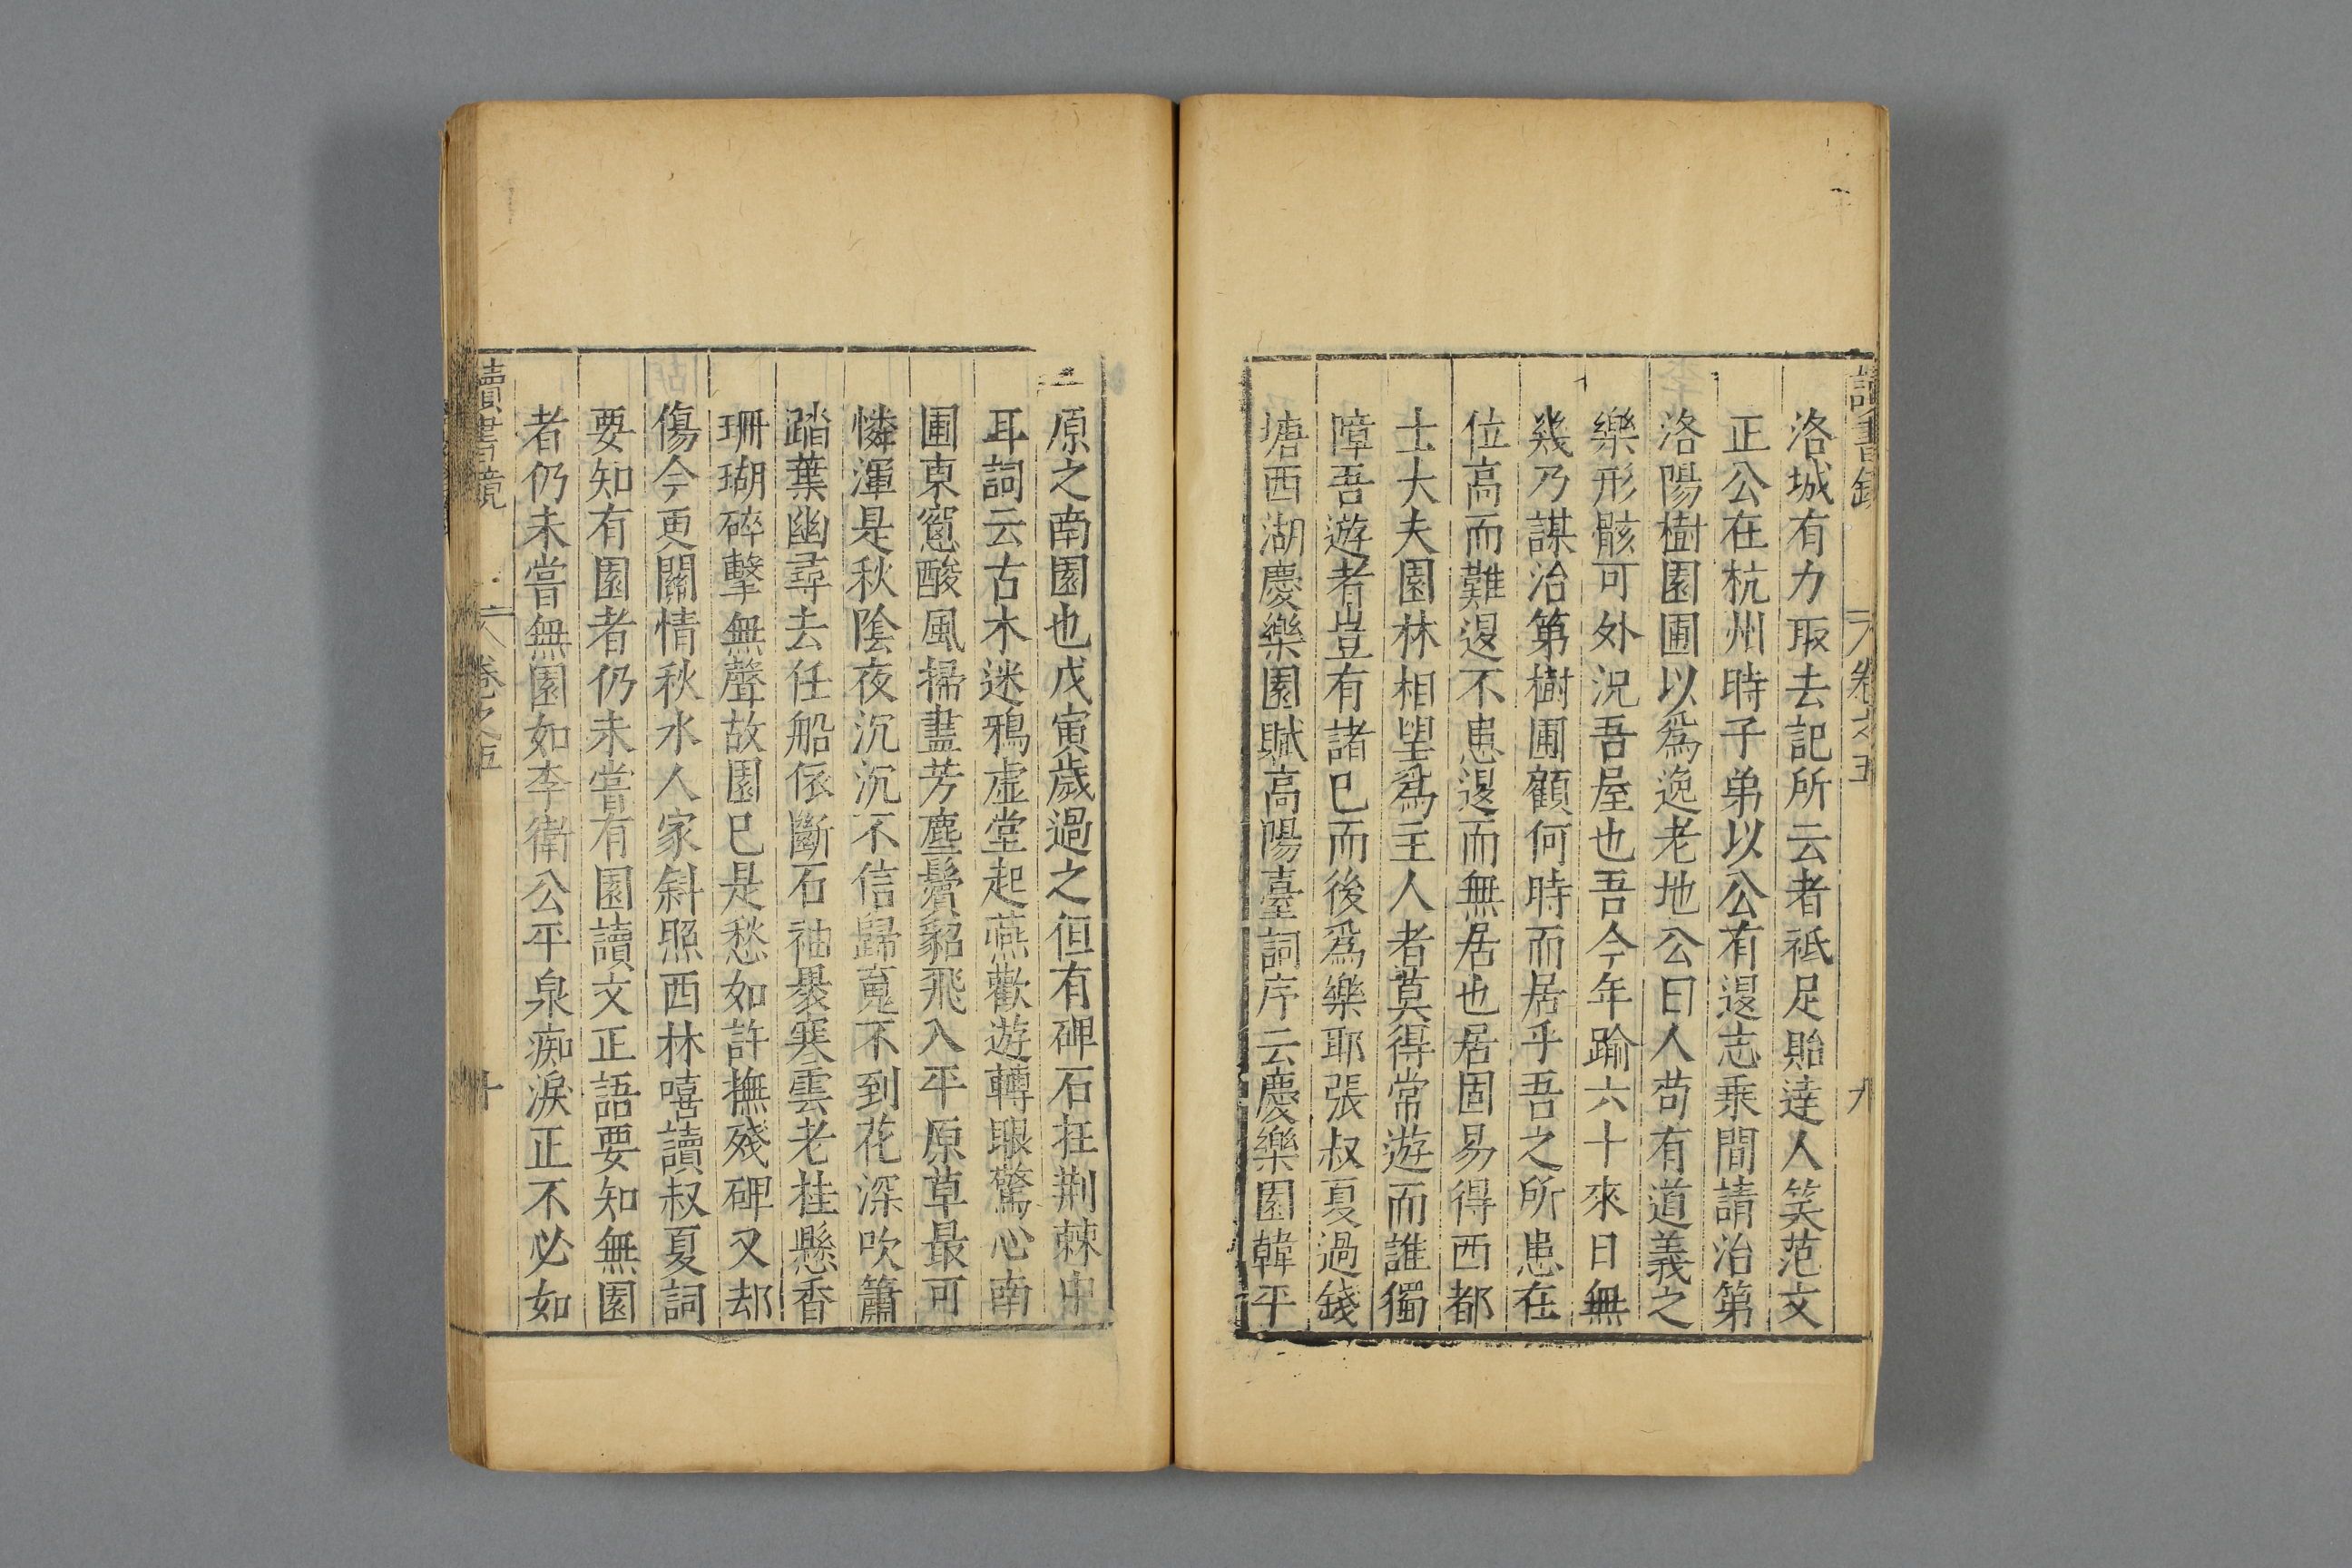 讀書鏡 卷之五 九
洛城有力取去記所云者祗足貽達人笑范文
正公在杭州時子弟以公有退志乘間請治第
洛陽樹園圃以爲逸老地公曰人苟有道義之
樂形骸可外況吾屋也吾今年踰六十來日無
幾乃謀治第樹圃顧何時而居乎吾之所患在
位高而難退不患退而無居也居固易得西都
士大夫園林相望爲主人者莫得常遊而誰獨
障吾遊者豈有諸巳而後爲樂耶張叔夏過錢
塘西湖慶樂園賦高陽臺詞序云慶樂園韓平
原之南園也戊寅歲過之但有碑石在荆棘中
耳詞云古木迷鴉虛堂起燕歡遊轉眼驚心南
圃東窻酸風掃盡芳塵鬢貂飛入平原草最可
憐渾是秋陰夜沉沉不信歸䰟不到花深吹簫
踏葉幽尋去任船依斷石袖褁寒雲老桂懸香
珊瑚碎擊無聲故園巳是愁如許撫殘碑又却
傷今更關情秋水人家斜照西林嘻讀叔夏詞
要知有園者仍未嘗有園讀文正語要知無園
者仍未嘗無園如李衛公平泉痴淚正不必如
讀書鏡 卷之五 十